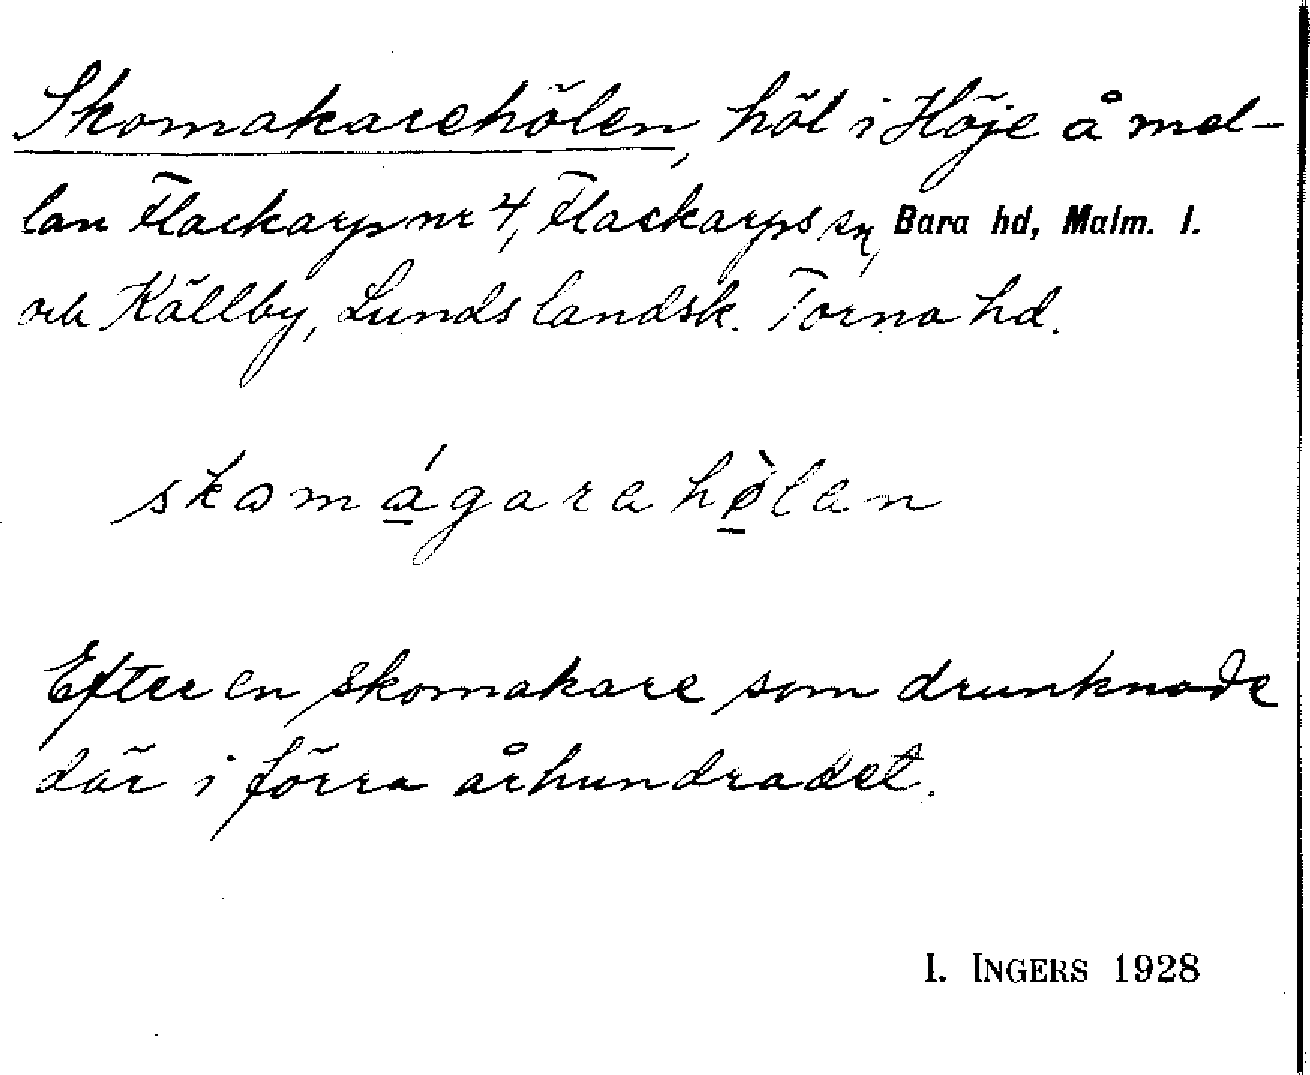 Skomakarehölen, höl i Höje å mel-
lan Flackarp nr 4, Flackarps sn, Bara hd, Malm. l.
och Källby, Lunds landsk. Torna hd.
skomágarahø̀lan
Efter en skomakare som drunknade
där i förra århundradet.
I. INGERS 1928